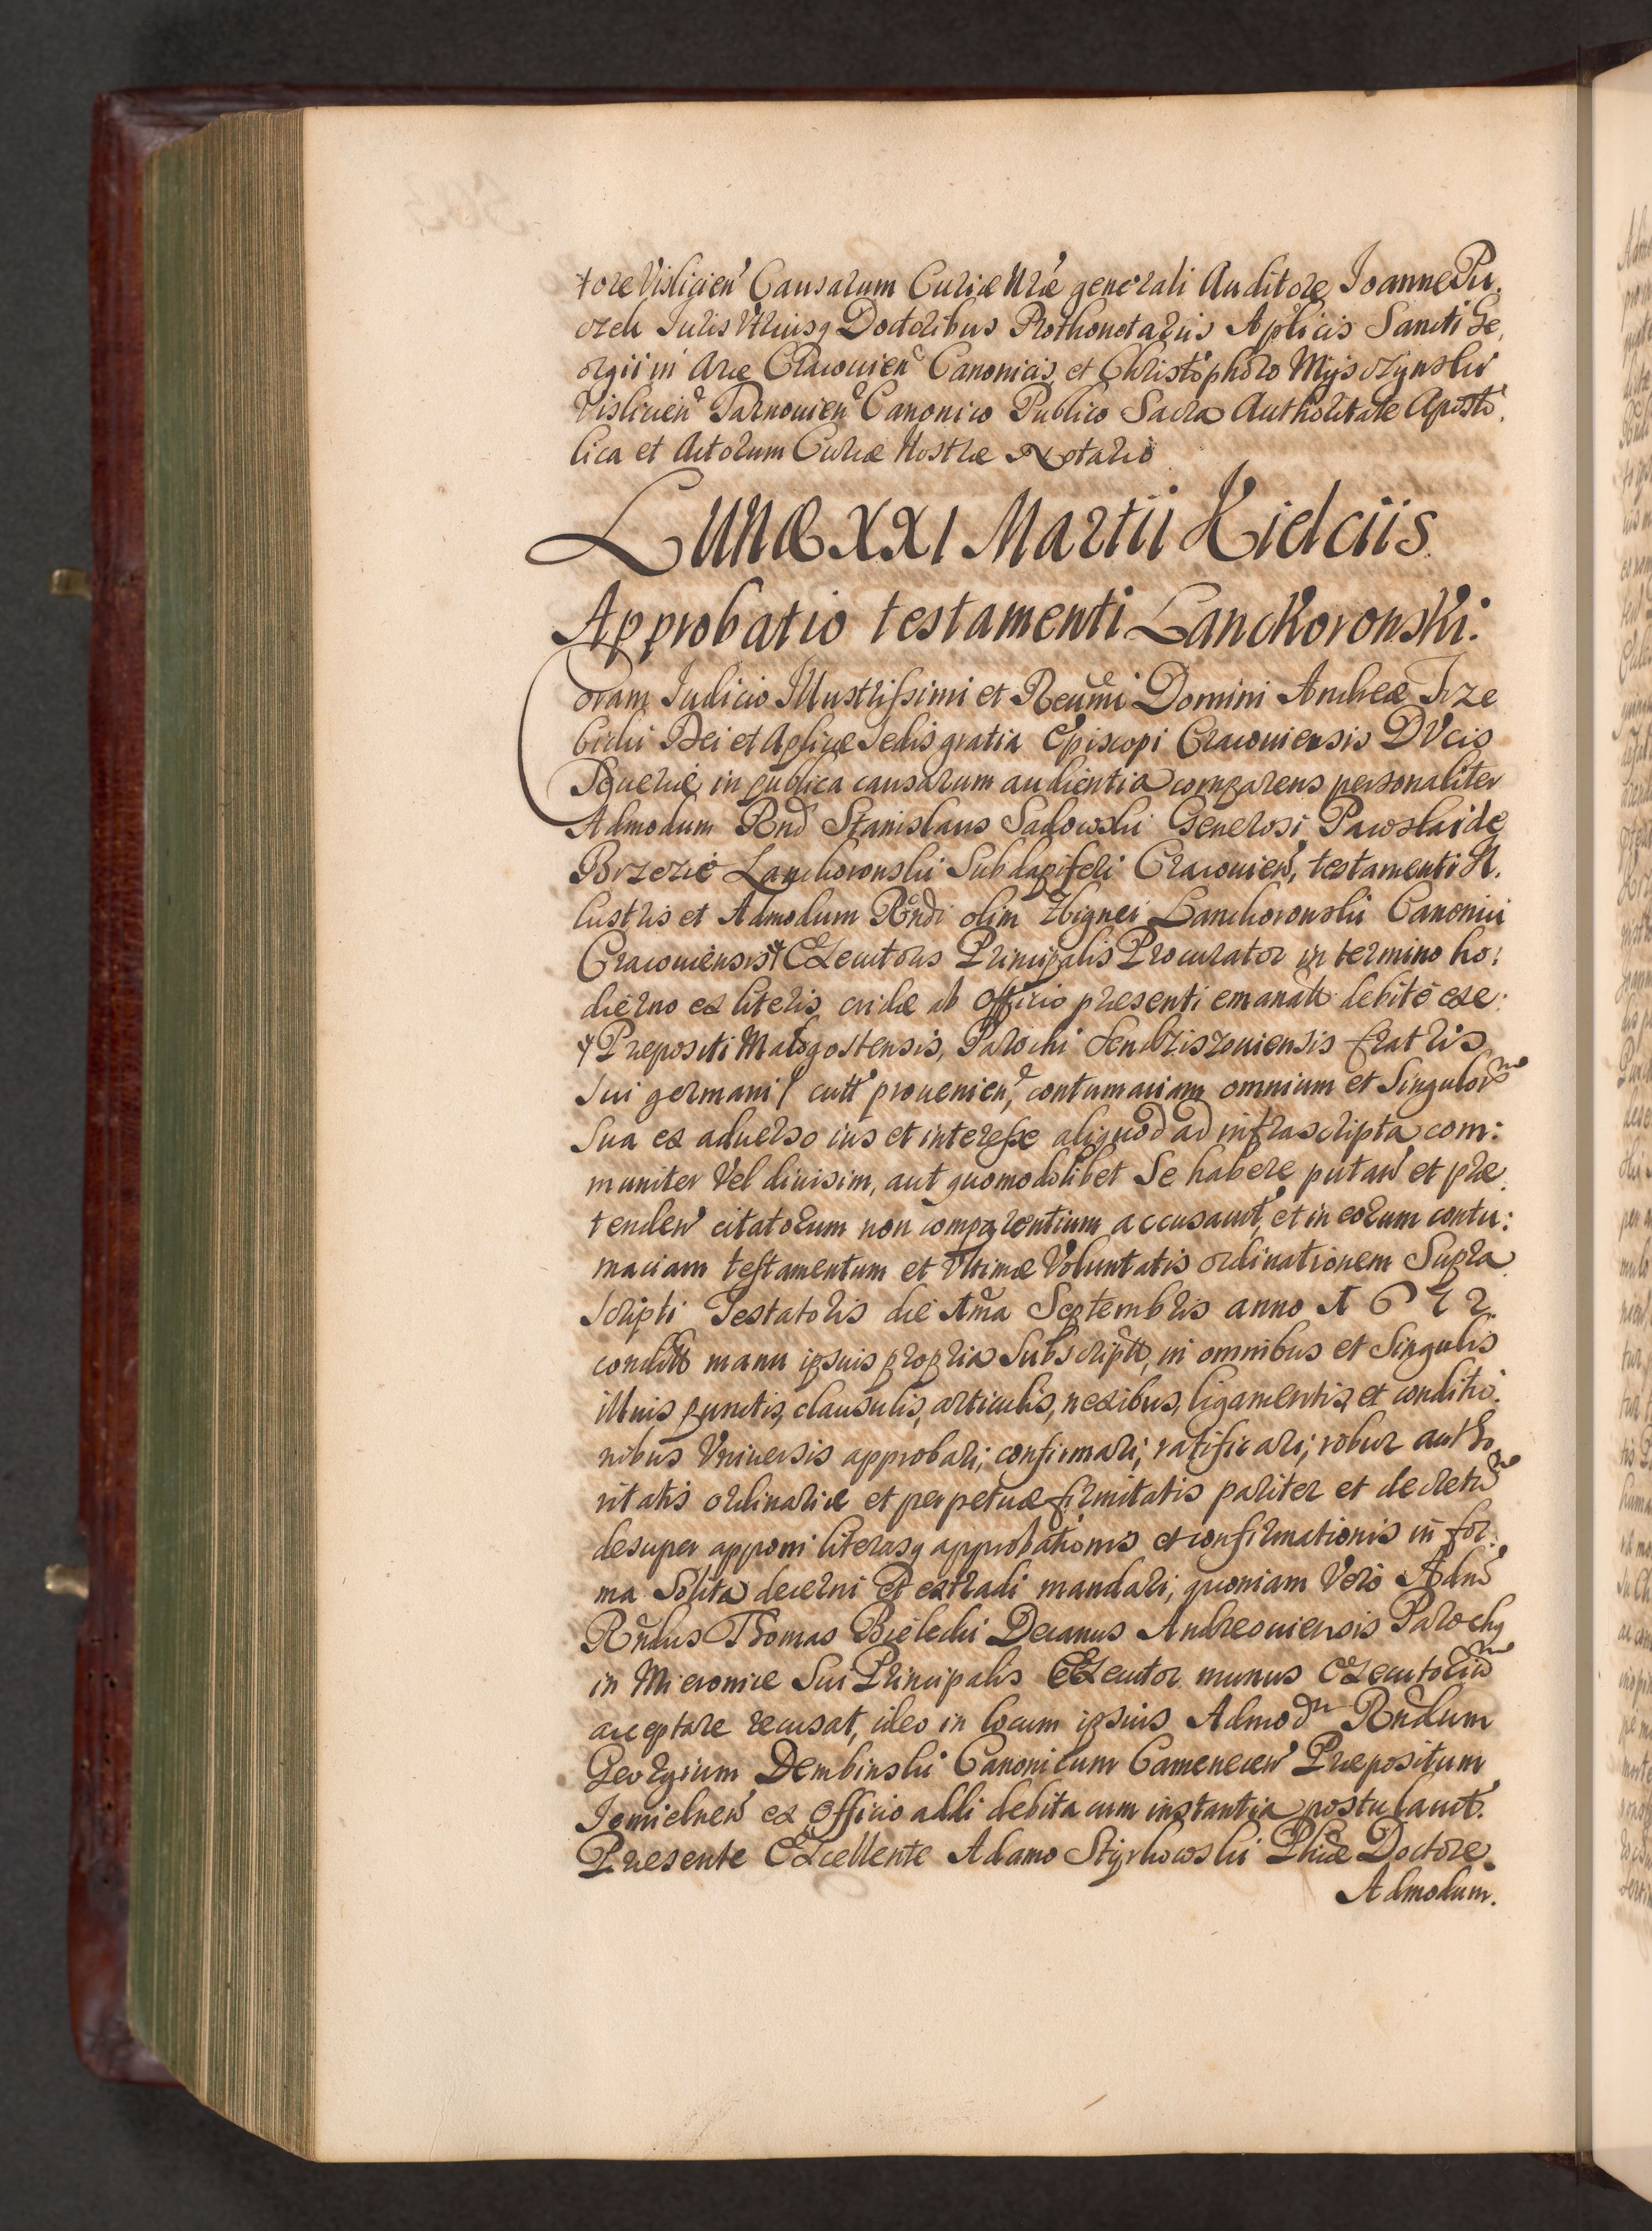 tore Vislicien Causarum Curiæ Nræ generali Auditore, Joanne Pu
czek Juris Vtriusq Doctoribus Prothonotariis Aplicis Sancti Ge,
orgii in Arce Cracouien Canonicis, et Christophoro Myjsczynski
Vislicien Tarnouien Canonico Publico Sacra Authoritate Aposto
lica et Actorum Curiæ Nostræ Notario
Lunæ XXI Martii Kielciis
Approbatio testamenti Lanckoronski.
Coram Judicio Illustrissimi et Reumi Domini Andreæ Trze
bicki Dei et Aplicæ Sedis gratia Episcopi Cracouiensis DVcis
Seueriæ, in publica causarum audientia comparens personaliter
Admodum Rnd Stanislaus Sadowski Generosi Pawslai de
Brzezie Lanckoronski Subdapiferi Cracouien, testamenti Il.
lustris et Admodum Rndi olim Zbignei Lanckoronski Canonici
Cracouiensis + Executoris Principalis Procurator in termino ho:
dierno ex literis cridæ ab Officio præsenti emanatt debite exe:
+ Præpositi Malogostensis, Parochi Sendziszouiensis fratris
sui germani / cutt prouenien, contumaciam omnium et Singulorum
sua ex aduerso ius et interesse aliquod ad infrascripta com:
muniter Vel diuisim, aut quomodolibet Se habere putan et præ
tenden citatorum non comparentium accusauit, et in eorum contu:
maciam testamentum et Vltimæ Voluntatis ordinationem Supra
scripti Testatoris die 1ma Septembris anno 1672
conditt manu ipsius propria Subscriptt, in omnibus et Singulis
illius punctis, clausulis, articulis, nexibus, ligamentis, et conditio
nibus Vniuersis approbari, confirmari, ratificari, robur autho
ritatis ordinariæ et perpetuæ firmitatis pariter et decretum
desuper apponi literasq approbationis et confirmationis in for
ma Solita decerni et extradi mandari, quoniam Vero Adm
Rndus Thomas Bielecki Decanus Andreouiensis Parochq
in Mieronice Sui Principalis CoExecutor munus Executorium
acceptare recusat, ideo in locum ipsius Admodm Rndum
Georgium Dembinski Canonicum Camenecen Præpositum
Jemielnen ex Officio addi debita cum instantia postulauit.
Præsente Excellente Adamo Styrkowski Phiæ Doctore
Admodum.